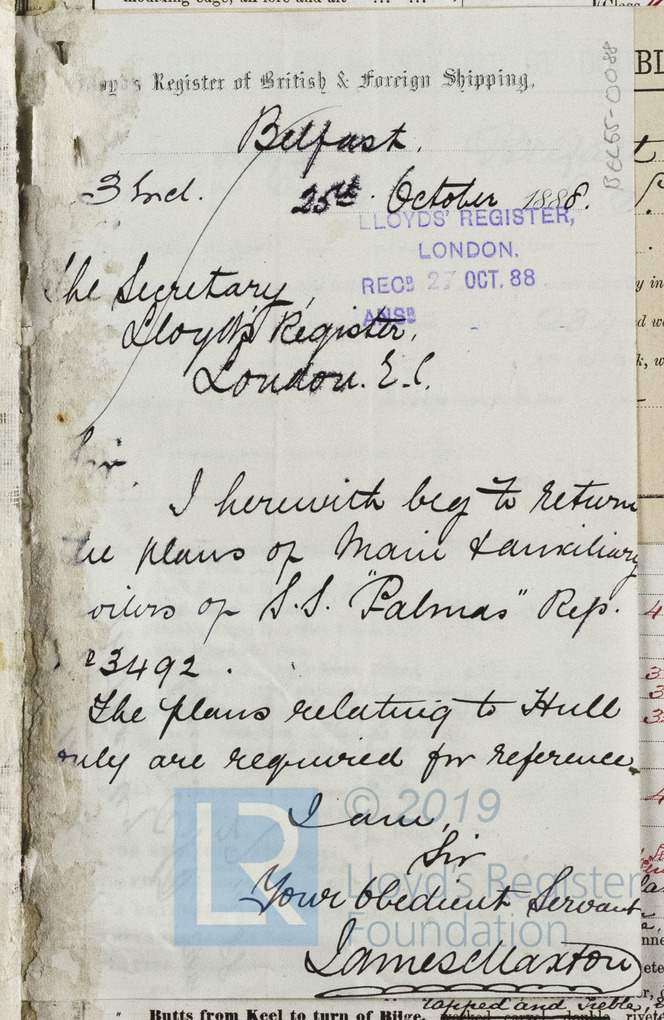 Register of British & Foreign Shipping,
Belfast.
3 Incl. 25th October 1888.
BEL55-0088
LLOYDS' REGISTER,
LONDON.
RECD 27 OCT. 88
ANSD
The Secretary,
Lloyd's Register,
London. E.C.
Sir
I herewith beg to return
the plans of Main & auxiliary
oilers of S.S. "Palmas" Rep.
3492.
The plans relating to Hull
only are required for reference
I am,
Sir
Your Obedient Servant
James Maxton
© 2019
LR
Lloyd's Register
Foundation
tapped and treble
Butts from Keel to turn of Bilge,